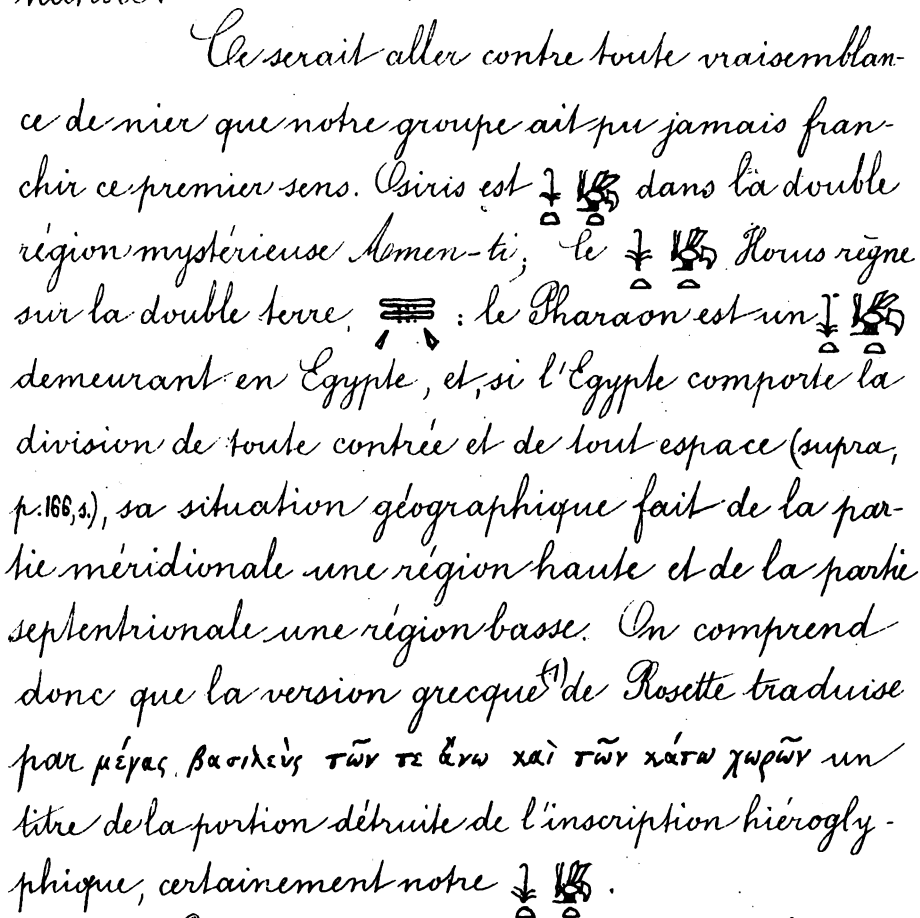 Ce serait aller contre toute vraisemblan-
ce de nier que notre groupe ait pu jamais fran-
chir ce premier sens. Osiris est 𓇓𓏏𓆤𓏏 dans la double
région mystérieuse Amen-ti; le 𓇓𓏏𓆤𓏏 Horus règne
sur la double terre, : le Pharaon est un 𓇓𓏏𓆤𓏏
demeurant en Egypte, et, si l'Egypte comporte la
division de toute contrée et de tout espace (supra,
p. 166, s.), sa situation géographique fait de la par-
tie méridionale une région haute et de la partie
septentrionale une région basse. On comprend
donc que la version grecque (1) de Rosette traduise
par μέγας βασιλεὺς τῶν τε ἄνω καὶ τῶν κάτω χωρῶν un
titre de la portion détruite de l'inscription hiérogly-
phique, certainement notre 𓇓𓏏𓆤𓏏.